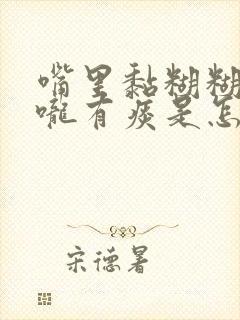 嘴里黏糊糊
咙有痰是怎
宋德暑